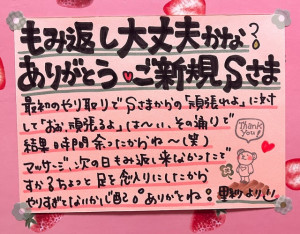 もみ返し大丈夫かな?
ありがとう♥ご新規Sさま
最初のやり取りでSさまからの「頑張れよ」に対
して「おお、頑張るよ」は〜い、その通りで
結果 時間余ったからね〜(笑)
マッサージ、次の日もみ返し来なかったで
すか?ちょっと足を念入りにしたから
やりすぎてないか心配。ありがとね!
より
Thank you!